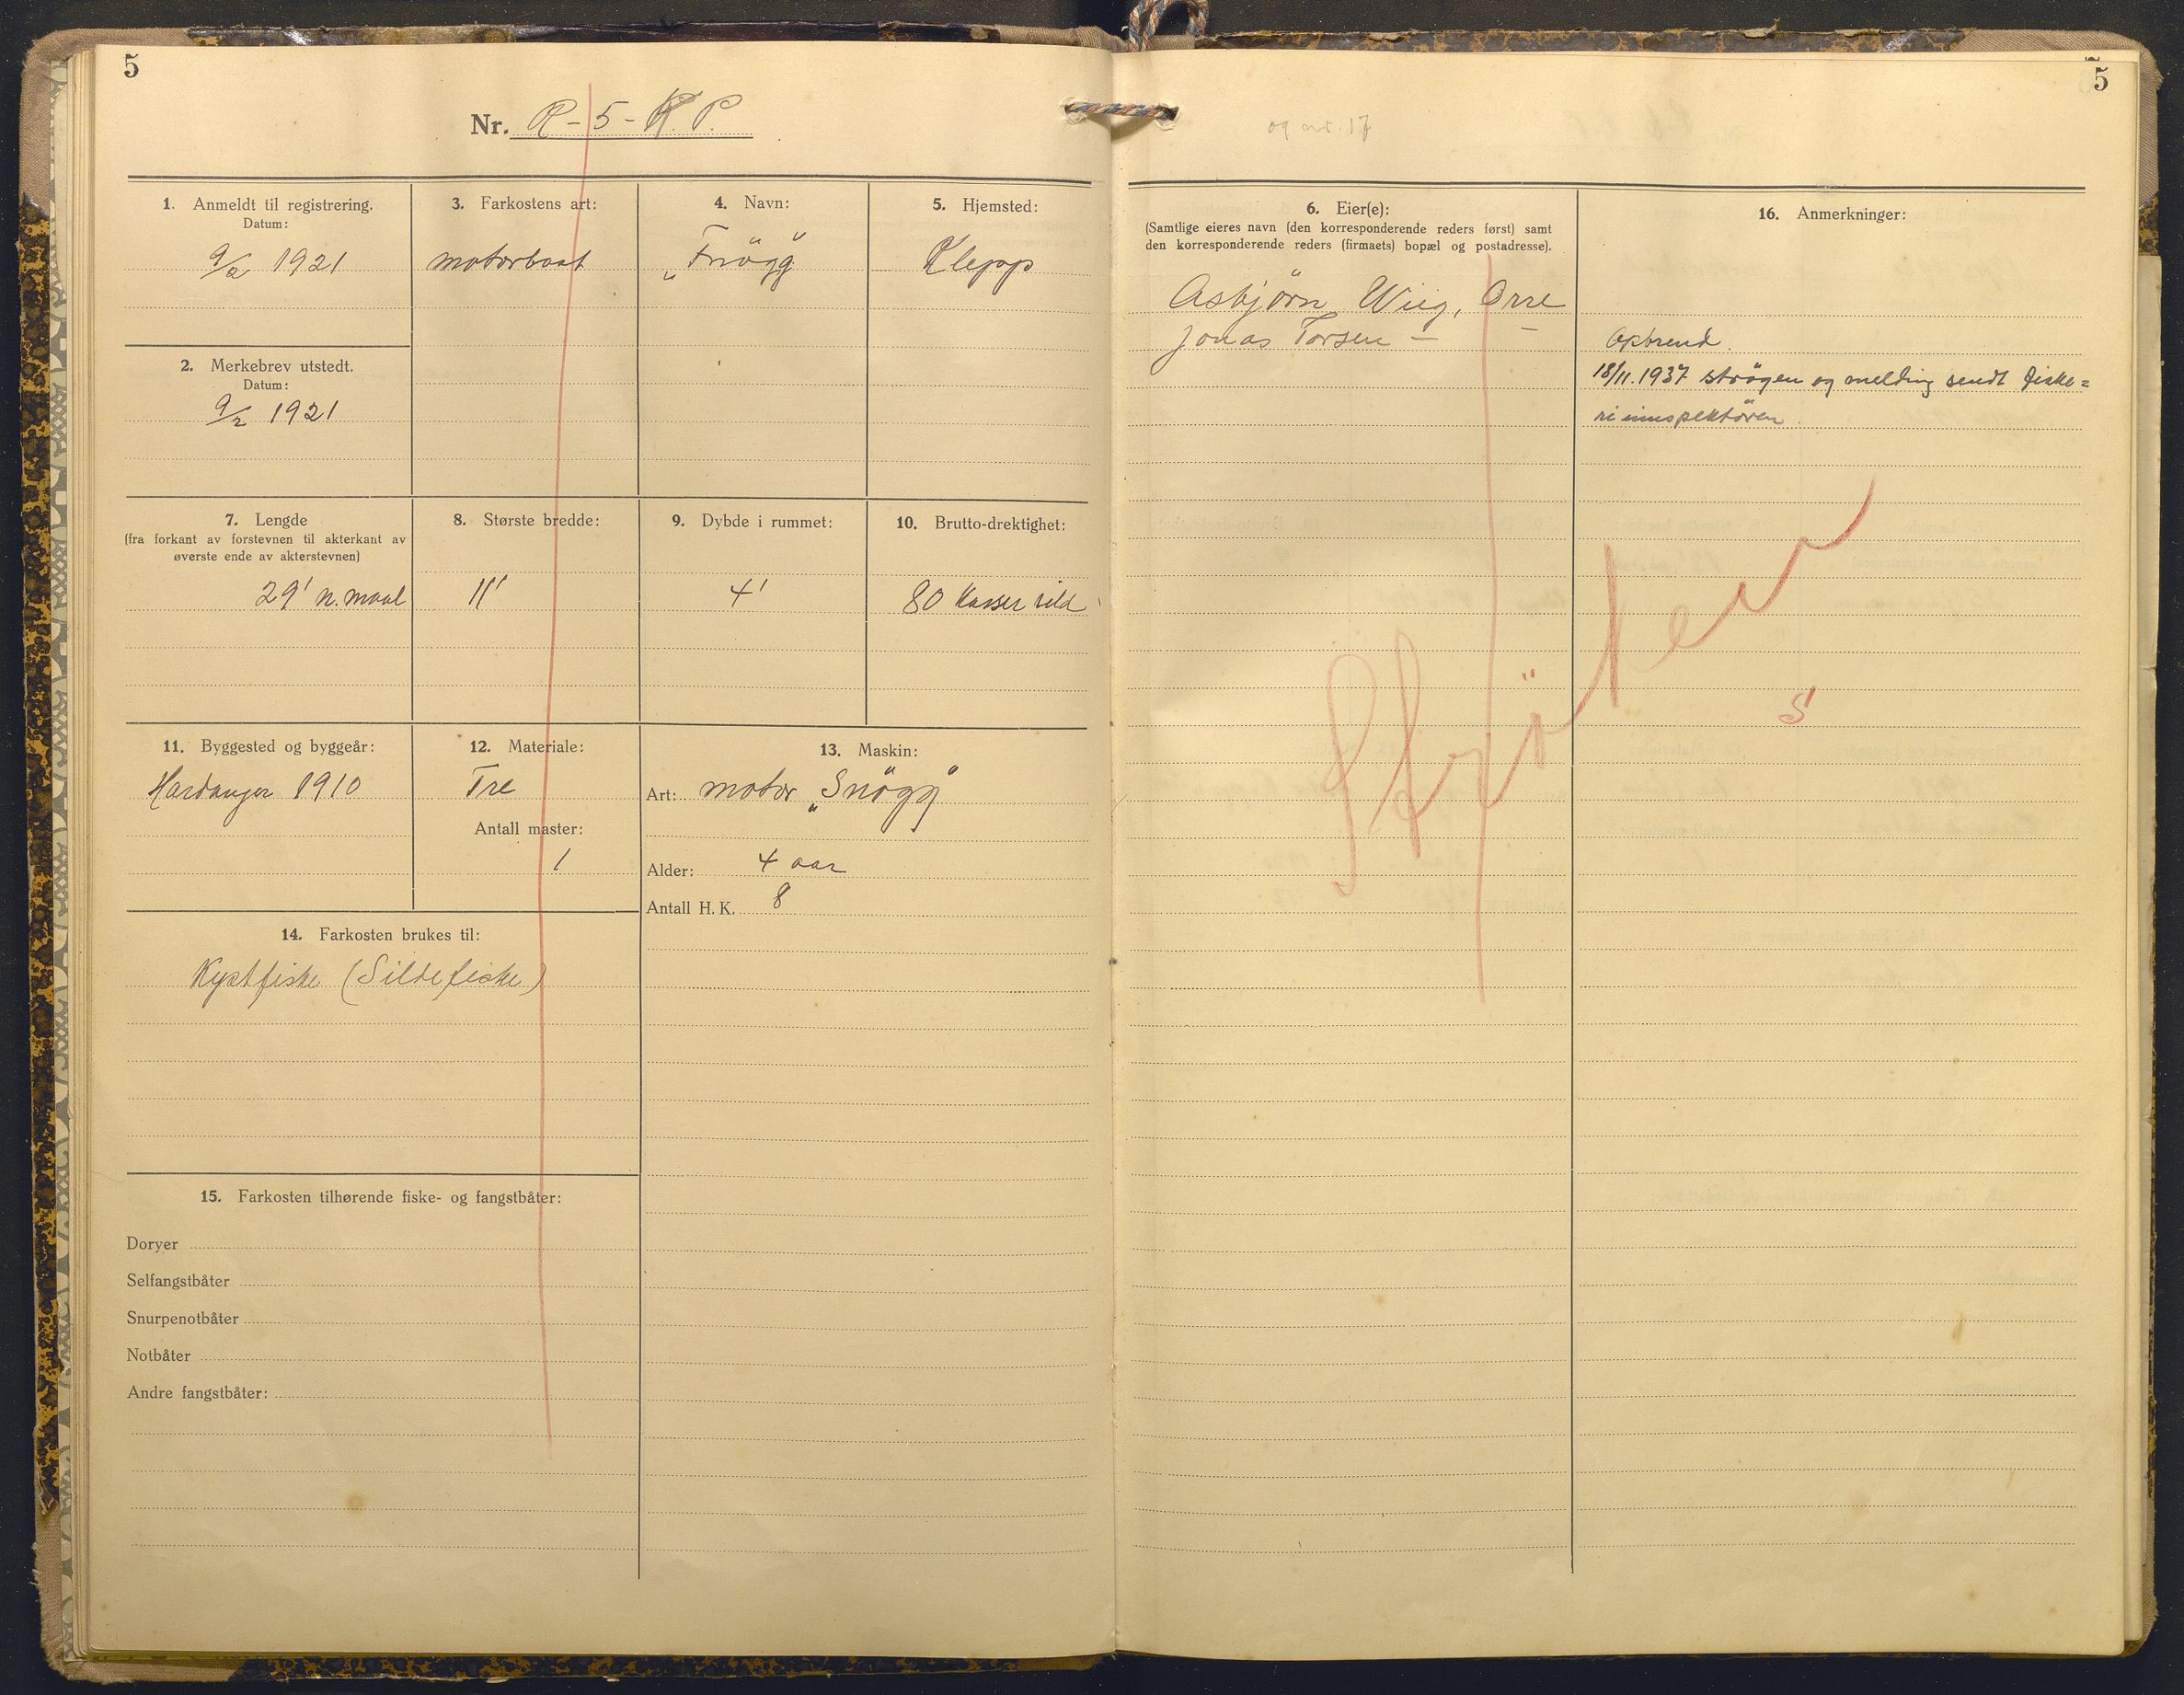 5
Nr. R-5-K.P.
1. Anmeldt til registrering.
Datum:
9/2 1921
2. Merkebrev utstedt.
Datum:
9/2 1921
3. Farkostens art:
motorbaat
4. Navn:
„Snögg"
5. Hjemsted:
Klepp
7. Lengde
(fra forkant av forstevnen til akterkant av
øverste ende av akterstevnen)
29' n. maal
8. Største bredde:
11'
9. Dybde i rummet:
4'
10. Brutto-drektighet:
80 kasser sild
11. Byggested og byggeår:
Hardanger 1910
12. Materiale:
Tre
Antall master:
1
13. Maskin:
Art: motor „Snögg"
Alder: 4 aar
Antall H. K. 8
14. Farkosten brukes til:
Kystfiske (Sildefiske)
15. Farkosten tilhørende fiske- og fangstbåter:
Doryer
Selfangstbåter
Snurpenotbåter
Notbåter
Andre fangstbåter:
5
og nr. 17
6. Eier(e):
(Samtlige eieres navn (den korresponderende reders først) samt
den korresponderende reders (firmaets) bopæl og postadresse).
Asbjörn Wiig, Orre
Jonas Torsen — —
16. Anmerkninger:
Opbrend.
18/11.1937 strögen og melding sendt fiske=
riinspektören.
Ströken
S